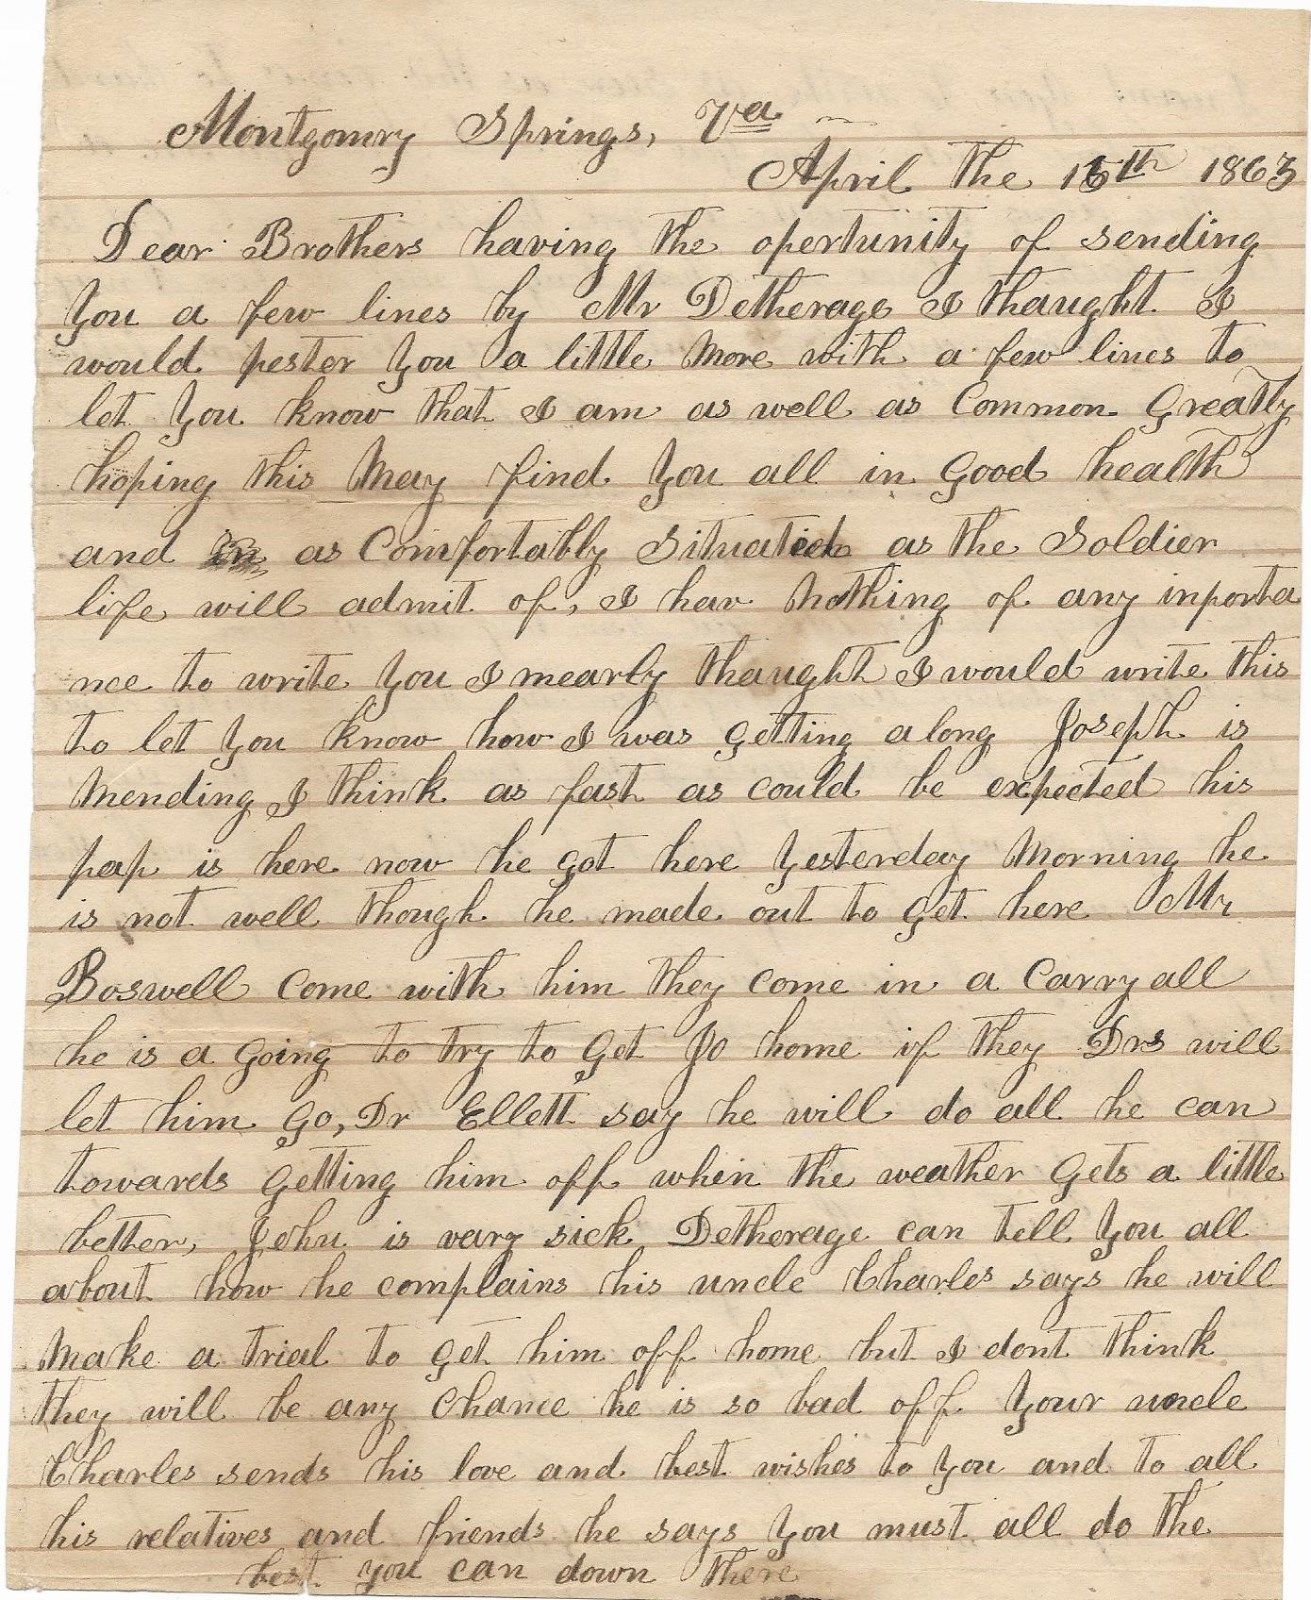 Montgomry Springs, Va
April the 16th 1863
Dear Brothers having the opertunity of sending
you a few lines by Mr Detherage I thaught I
would pester you a little more with a few lines to
let you know that I am as well as common Greatly
hoping this may find you all in good health
and as comfortably situated as the soldier
life will admit of, I hav nothing of any inporta
nce to write you I mearly thaught I would write this
to let you know how I was getting along Joseph is
mending I think as fast as could be expected his
pap is here now he got here yesterday morning he
is not well though he made out to get here Mr
Boswell come with him they come in a carryall
he is a going to try to get Jo home if they Drs will
let him go, Dr Ellett say he will do all he can
towards getting him off when the weather gets a little
better, John is vary sick Detherage can tell you all
about how he complains his uncle Charles says he will
make a trial to get him off home but I dont think
they will be any chance he is so bad off. Your uncle
Charles sends his love and best wishes to you and to all
his relatives and friends he says you must all do the
best you can down there